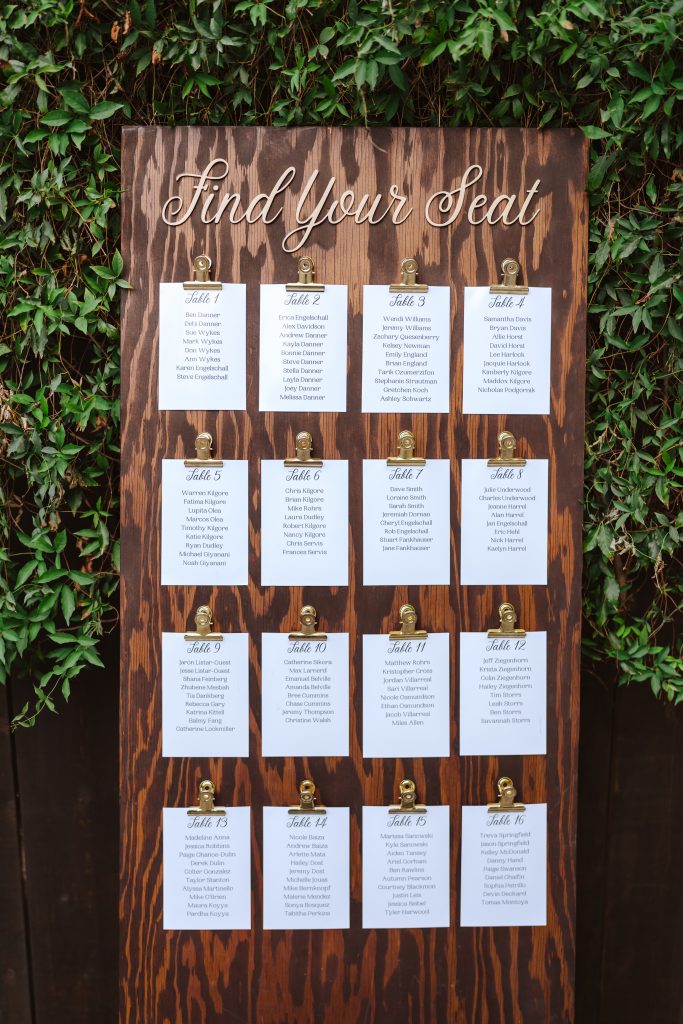 Find Your Seat
Table 1
Ben Danner
Debi Danner
Sue Wykes
Mark Wykes
Don Wykes
Ann Wykes
Karen Engelschall
Steve Engelschall
Table 2
Erica Engelschall
Alex Davidson
Andrew Danner
Kayla Danner
Bonnie Danner
Steve Danner
Stella Danner
Layla Danner
Joey Danner
Melissa Danner
Table 3
Wendi Williams
Jeremy Williams
Zachary Quesenberry
Kelsey Newman
Emily England
Brian England
Tarik Ozumerzifon
Stephanie Strautman
Gretchen Koch
Ashley Schwartz
Table 4
Samantha Davis
Bryan Davis
Allie Horst
David Horst
Lee Harlook
Jacquie Harlook
Kimberly Kilgore
Maddox Kilgore
Nicholas Podgornik
Table 5
Warren Kilgore
Fatima Kilgore
Lupita Olea
Marcos Olea
Timothy Kilgore
Katie Kilgore
Ryan Dudley
Michael Giyanani
Noah Giyanani
Table 6
Chris Kilgore
Brian Kilgore
Mike Rohrs
Laura Dudley
Robert Kilgore
Nancy Kilgore
Chris Servis
Frances Servis
Table 7
Dave Smith
Loraine Smith
Sarah Smith
Jeremiah Dornan
Cheryl Engelschall
Rob Engelschall
Stuart Fankhauser
Jane Fankhauser
Table 8
Julie Underwood
Charles Underwood
Jeanne Harrel
Alan Harrel
Jan Engelschall
Eric Hehl
Nick Harrel
Kaelyn Harrel
Table 9
Jaron Listar-Guest
Jesse Listar-Guest
Shana Feinberg
Zhubene Mesbah
Tia Dankberg
Rebecca Gary
Katrina Kittell
Bailey Fang
Catherine Lockmiller
Table 10
Catherine Sikora
Max Larnerd
Emanuel Belville
Amanda Belville
Bree Cummins
Chase Cummins
Jeremy Thompson
Christine Walsh
Table 11
Matthew Rohrs
Kristopher Cross
Jordan Villarreal
Sari Villarreal
Nicole Osmundson
Ethan Osmundson
Jacob Villarreal
Miles Allen
Table 12
Jeff Ziegenhorn
Krista Ziegenhorn
Colin Ziegenhorn
Hailey Ziegenhorn
Tim Storrs
Leah Storrs
Ben Storrs
Savannah Storrs
Table 13
Madeline Anna
Jessica Robbins
Paige Chance-Dulin
Derek Dulin
Colter Gonzalez
Taylor Stanton
Alyssa Martinello
Mike O'Brien
Maura Koyya
Pardha Koyya
Table 14
Nicole Baiza
Andrew Baiza
Arlette Mata
Hailey Dost
Jeremy Dost
Michelle Jouas
Mike Bernskoepf
Valerie Mendez
Sonya Basquez
Tabitha Perkins
Table 15
Marissa Sanowski
Kyle Sanowski
Aiden Tansey
Ariel Gorham
Ben Rawlins
Autumn Pearson
Courtney Blackmon
Justin Leis
Jessica Bisbel
Tyler Harwood
Table 16
Treva Springfield
Jason Springfield
Kelley McDonald
Danny Hand
Paige Swanson
Daniel Chaffin
Sophia Petrillo
Devin Deckard
Tomas Montoya